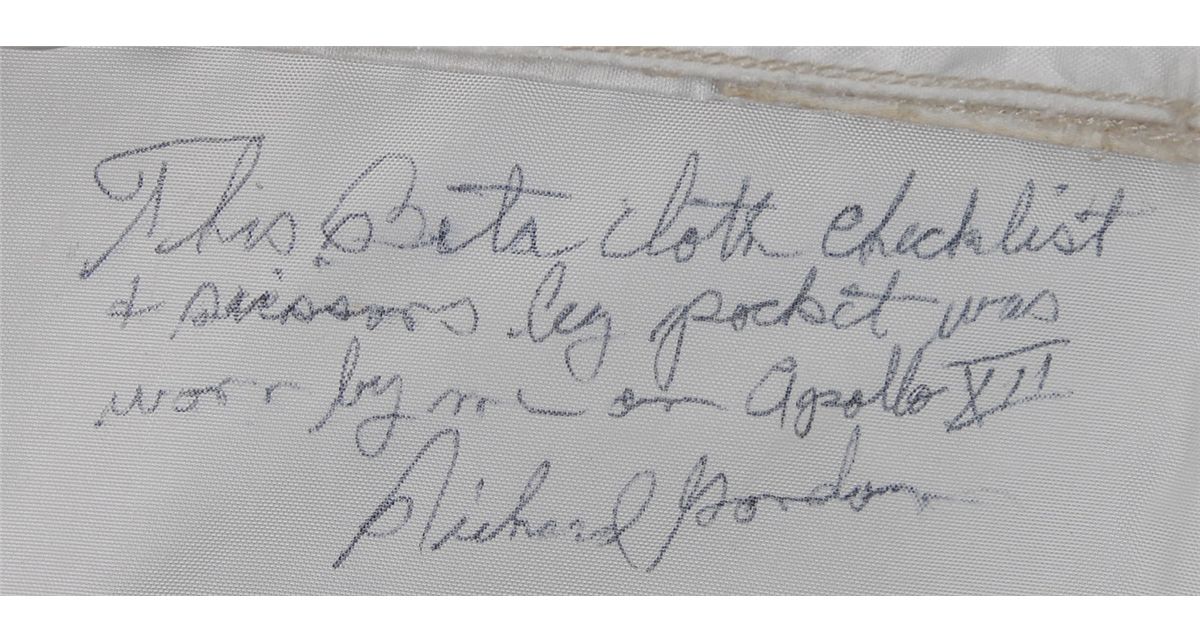 This Beta cloth checklist
+ scissors leg pocket was
worn by me on Apollo XII
Richard Gordon